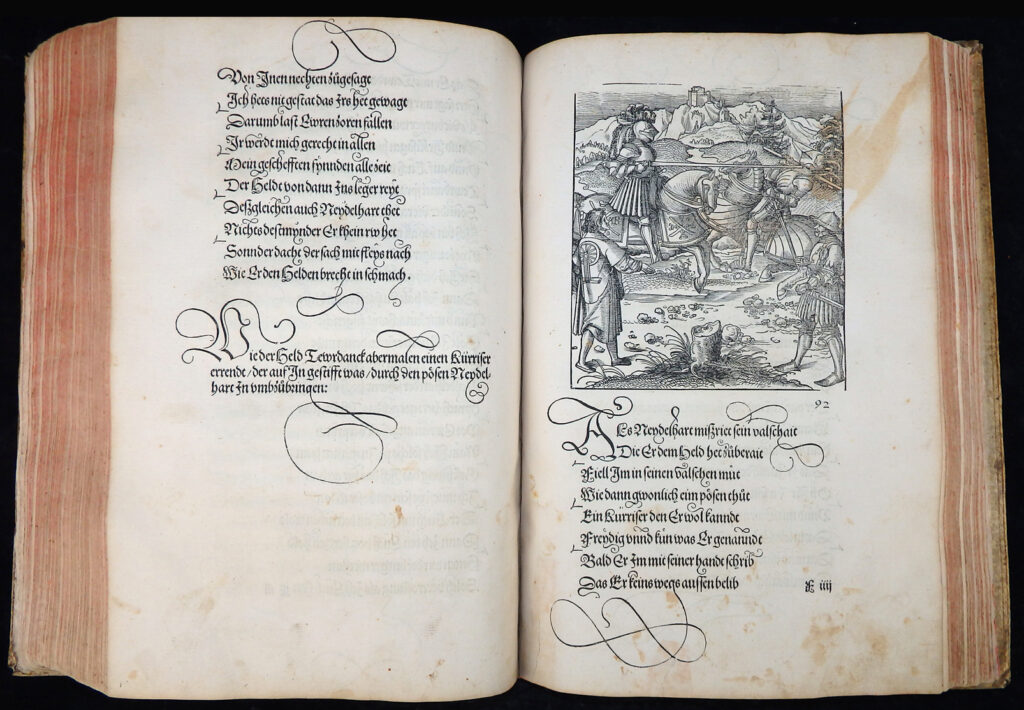 Von Inen nechten zůgesagt
Ich hets nit gestat das Irs het gewagt
Darumb last Ewren zoren fallen
Ir werdt mich gerecht in allen
Mein geschefften fynnden alle zeit
Der Heldt von dann Ins leger reyt
Deßgleichen auch Neydelhart thet
Nichts destmynder Er khein rw het
Sonnder dacht der sach mit fleys nach
Wie Er den Helden brecht in schmach.
Wie der Held Tewrdanck abermalen einen Kürriser
errendt / der auf In gestifft was / durch den pösen Neydel-
hart In umbzůbringen:
92
Als Neydelhart mißriet sein valschait
Die Er dem Held het zůberait
Fiell Im in seinen valschen můt
Wie dann gwonlich ein pösen thůt
Ein Kürriser den Er wol kanndt
Freydig vnnd kün was Er genanndt
Bald Er Im mit seiner handt schrib
Das Er keins wegs aussen belib
iiij